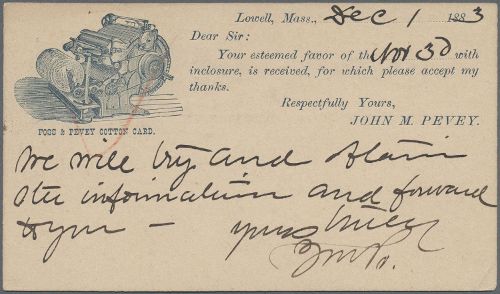 Lowell, Mass., Dec 1 1883
Dear Sir:
Your esteemed favor of the Nov 30 with
inclosure, is received, for which please accept my
thanks.
Respectfully Yours,
JOHN M. PEVEY.
FOSS & PEVEY COTTON CARD.
We will try and obtain
the information and forward
to you —
yours truly